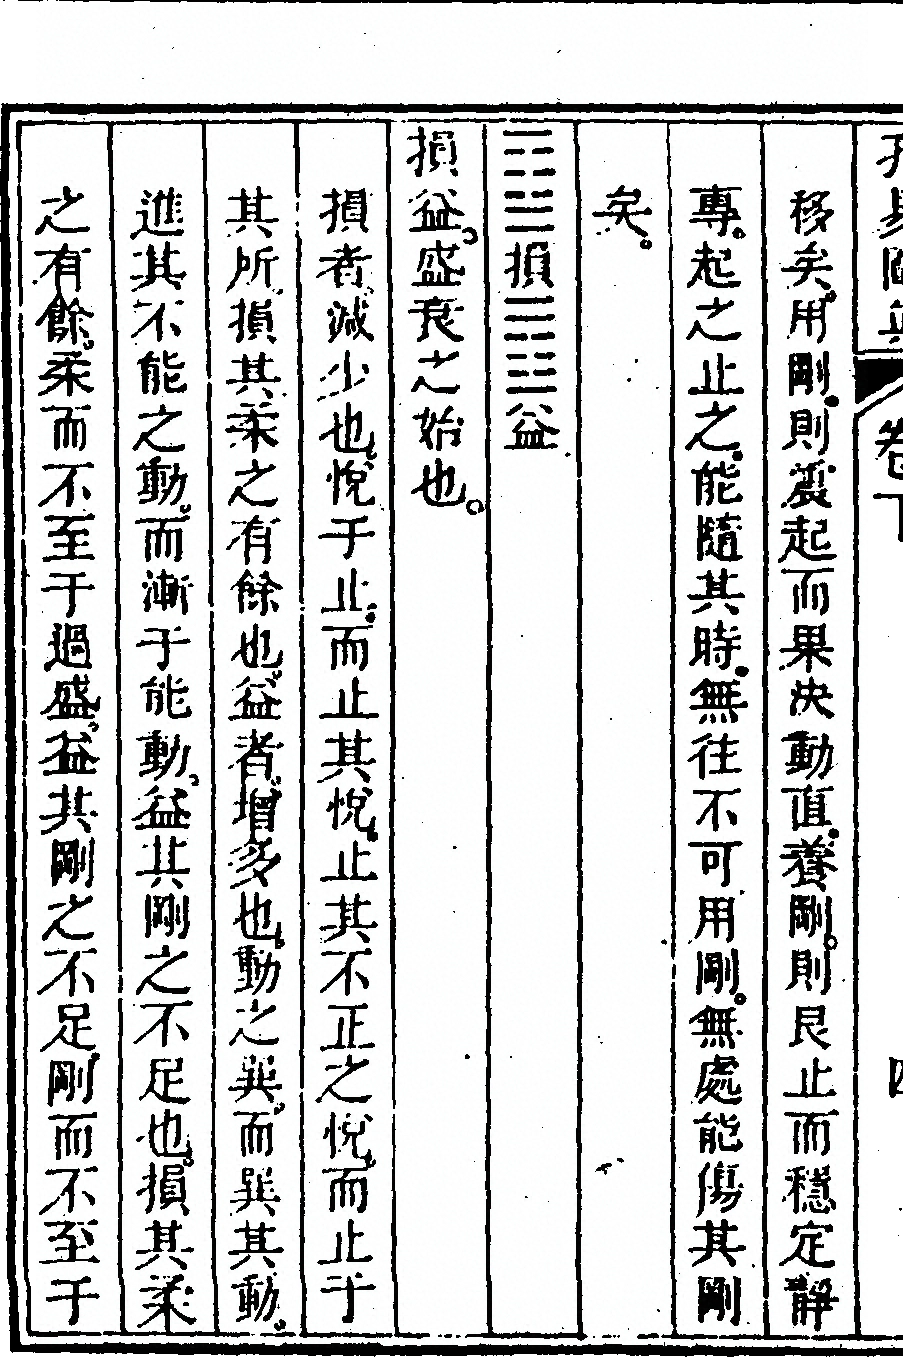 孔易闡真 卷下 四
移矣。用剛。則震起而果決動直。養剛。則艮止而穩定靜
專。起之止之。能隨其時。無往不可用剛。無處能傷其剛
矣。
䷨損䷩益
損益。盛衰之始也。
損者、減少也、悅于止。而止其悅。止其不正之悅、而止于
其所、損其柔之有餘也、益者、增多也、動之巽、而巽其動。
進其不能之動、而漸于能動、益其剛之不足也、損其柔
之有餘、柔而不至于過盛、益其剛之不足、剛而不至于